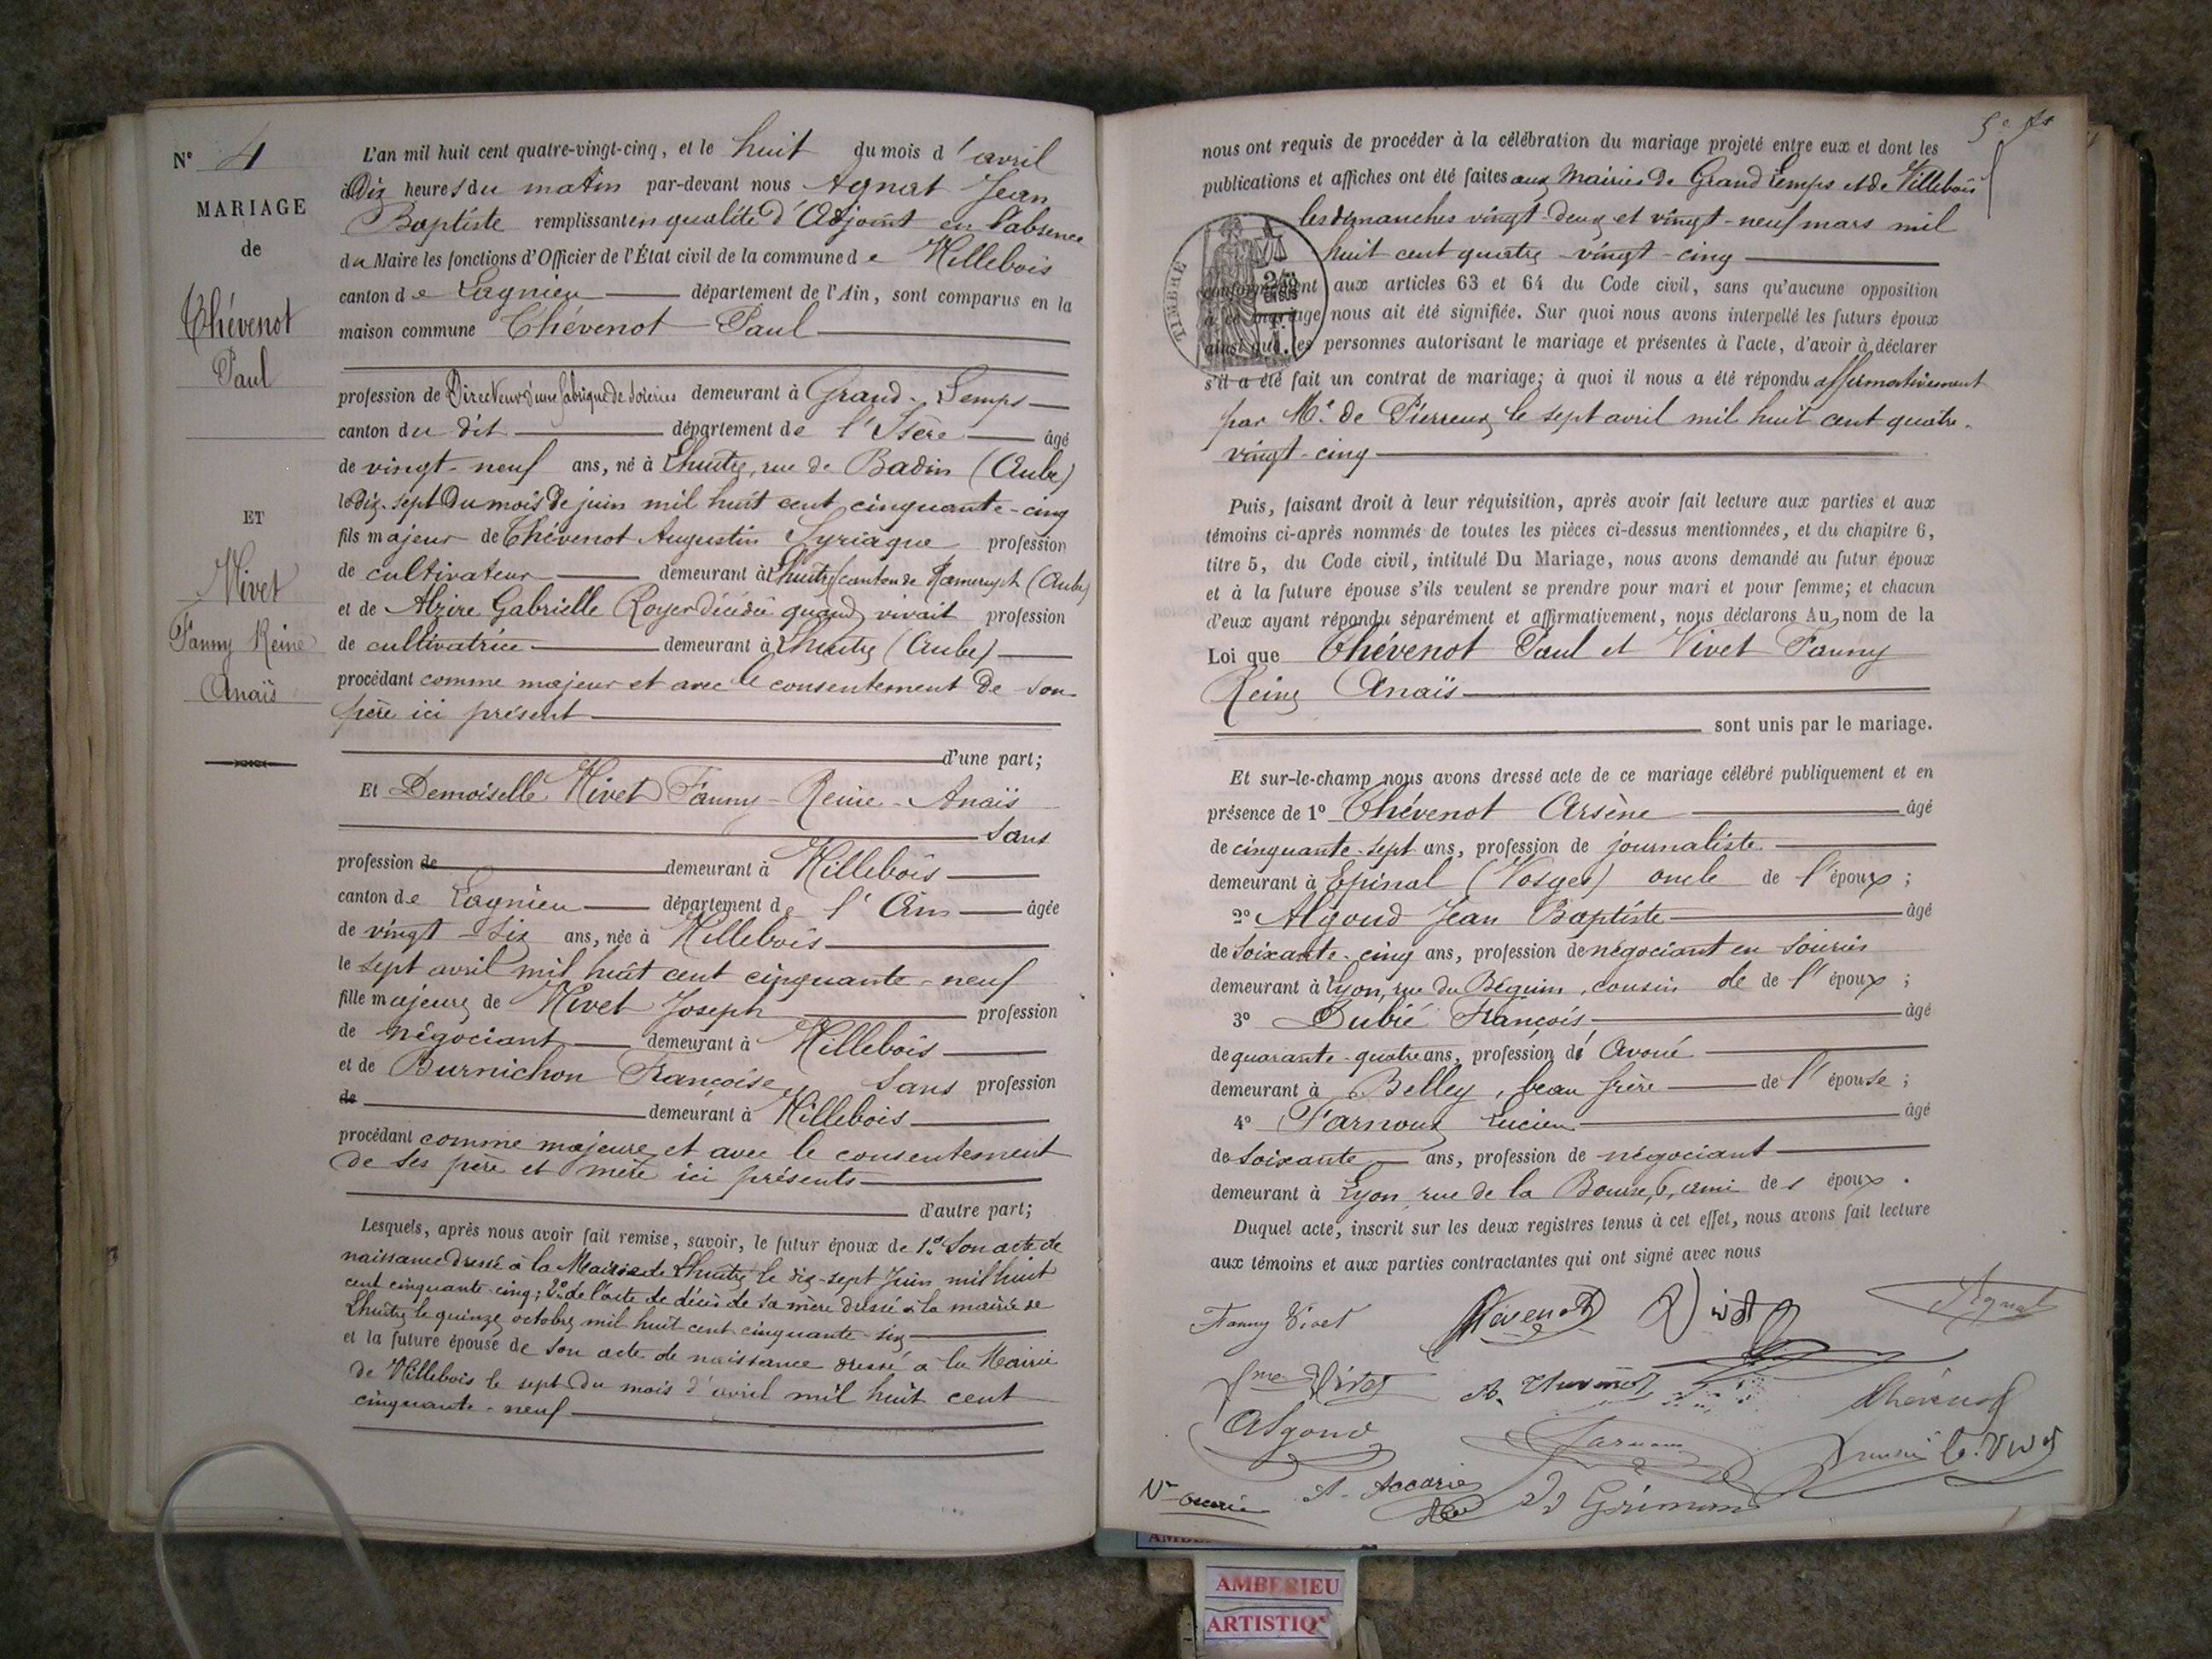 N° 4
MARIAGE
de
Thévenot
Paul
ET
Vivet
Fanny Reine
Anaïs
L'an mil huit cent quatre-vingt-cinq, et le huit du mois d'avril
à Dix heures du matin par-devant nous Agnat Jean
Baptiste remplissant en qualité d'Adjoint en l'absence
du Maire les fonctions d'Officier de l'État civil de la commune de Villebois
canton de Lagnieu département de l'Ain, sont comparus en la
maison commune Thévenot Paul
profession de Directeur d'une fabrique de soieries demeurant à Grand-Lemps
canton du dit département de l'Isère âgé
de vingt-neuf ans, né à Lhuitre, rue de Badin (Aube)
le dix-sept du mois de juin mil huit cent cinquante-cinq
fils majeur de Thévenot Augustin Syriaque profession
de cultivateur demeurant à Lhuitre (canton de Ramerupt (Aube)
et de Alzire Gabrielle Royer décédée quand vivait profession
de cultivatrice demeurant à Lhuitre (Aube)
procédant comme majeur et avec le consentement de son
père ici présent
d'une part;
Et Demoiselle Vivet Fanny-Reine-Anaïs
sans
profession de demeurant à Villebois
canton de Lagnieu département de l'Ain âgée
de vingt-six ans, née à Villebois
le sept avril mil huit cent cinquante-neuf
fille majeure de Vivet Joseph profession
de négociant demeurant à Villebois
et de Burnichon Françoise, sans profession
de demeurant à Villebois
procédant comme majeure et avec le consentement
de ses père et mère ici présents
d'autre part;
Lesquels, après nous avoir fait remise, savoir, le futur époux de 1° son acte de
naissance dressé à la Mairie de Lhuitre le dix-sept Juin mil huit
cent cinquante-cinq; 2° de l'acte de décès de sa mère dressé à la mairie de
Lhuitre le quinze octobre mil huit cent cinquante-six
et la future épouse de son acte de naissance dressé à la Mairie
de Villebois le sept du mois d'avril mil huit cent
cinquante-neuf
nous ont requis de procéder à la célébration du mariage projeté entre eux et dont les
publications et affiches ont été faites aux Mairies de Grand Lemps et de Villebois
les dimanches vingt-deux et vingt-neuf mars mil
huit cent quatre-vingt-cinq
TIMBRE
conformément aux articles 63 et 64 du Code civil, sans qu'aucune opposition
à ce mariage nous ait été signifiée. Sur quoi nous avons interpellé les futurs époux
ainsi que les personnes autorisant le mariage et présentes à l'acte, d'avoir à déclarer
s'il a été fait un contrat de mariage; à quoi il nous a été répondu affirmativement
par Me de Pierreux, le sept avril mil huit cent quatre-
vingt-cinq
Puis, faisant droit à leur réquisition, après avoir fait lecture aux parties et aux
témoins ci-après nommés de toutes les pièces ci-dessus mentionnées, et du chapitre 6,
titre 5, du Code civil, intitulé Du Mariage, nous avons demandé au futur époux
et à la future épouse s'ils veulent se prendre pour mari et pour femme; et chacun
d'eux ayant répondu séparément et affirmativement, nous déclarons Au nom de la
Loi que Thévenot Paul et Vivet Fanny
Reine Anaïs
sont unis par le mariage.
Et sur-le-champ nous avons dressé acte de ce mariage célébré publiquement et en
présence de 1° Thévenot Arsène âgé
de cinquante-sept ans, profession de journaliste
demeurant à Epinal (Vosges) oncle de l'époux;
2° Algoud Jean Baptiste âgé
de soixante-cinq ans, profession de négociant en soieries
demeurant à Lyon, rue du Béguin, cousin de de l'époux;
3° Dubié François âgé
de quarante-quatre ans, profession d'Avoué
demeurant à Belley, beau frère de l'épouse;
4° Farnoux Lucien âgé
de soixante ans, profession de négociant
demeurant à Lyon, rue de la Bourse, 6, ami de l'époux.
Duquel acte, inscrit sur les deux registres tenus à cet effet, nous avons fait lecture
aux témoins et aux parties contractantes qui ont signé avec nous
Fanny Vivet Thévenot Vivet Agnat
fme Vivet A. Thévenot Thévenot
Algoud Farnoux C. Vivet
A. Accarie Grimom
AMBERIEU
ARTISTIQ